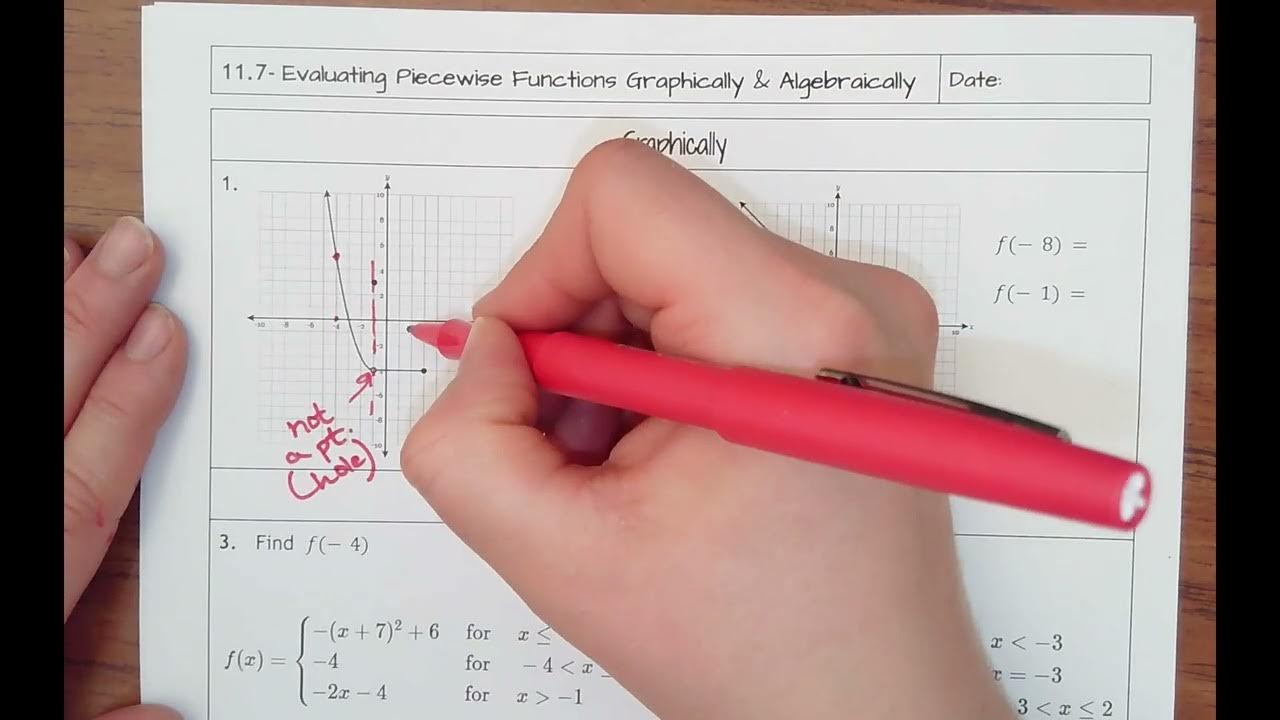 11.7- Evaluating Piecewise Functions Graphically & Algebraically
Date:
Graphically
1.
f(- 8) =
f(- 1) =
not
a pt.
(hole)
3. Find f(- 4)
f(x) =
-(x + 7)² + 6 for x ≤
-4 for - 4 < x
-2x - 4 for x > -1
x < -3
x = -3
3 < x ≤ 2